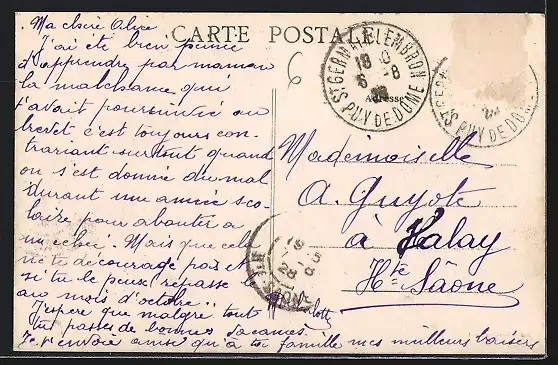 CARTE POSTALE
Ma chère Alice
J'ai été bien peinée
d'apprendre par maman
la malchance qui
t'avait poursuivie au
brevet c'est toujours con-
trariant surtout quand
on s'est donné du mal
durant une année sco-
laire pour aboutir à
un échec. Mais que cela
ne te décourage pas et
si tu le peux repasse le
au mois d'octobre..
J'espère que malgré tout
tu passes de bonnes vacances.
Je t'envoie ainsi qu'à ta famille mes meilleurs baisers
Charlotte
6
ST GERMAIN LEMBRON
18
6 -8
PUY DE DOME
Adresse
ST GERMA
PUY DE DO
Mademoiselle
A. Guyote
à Valay
Hte Saône
18
28